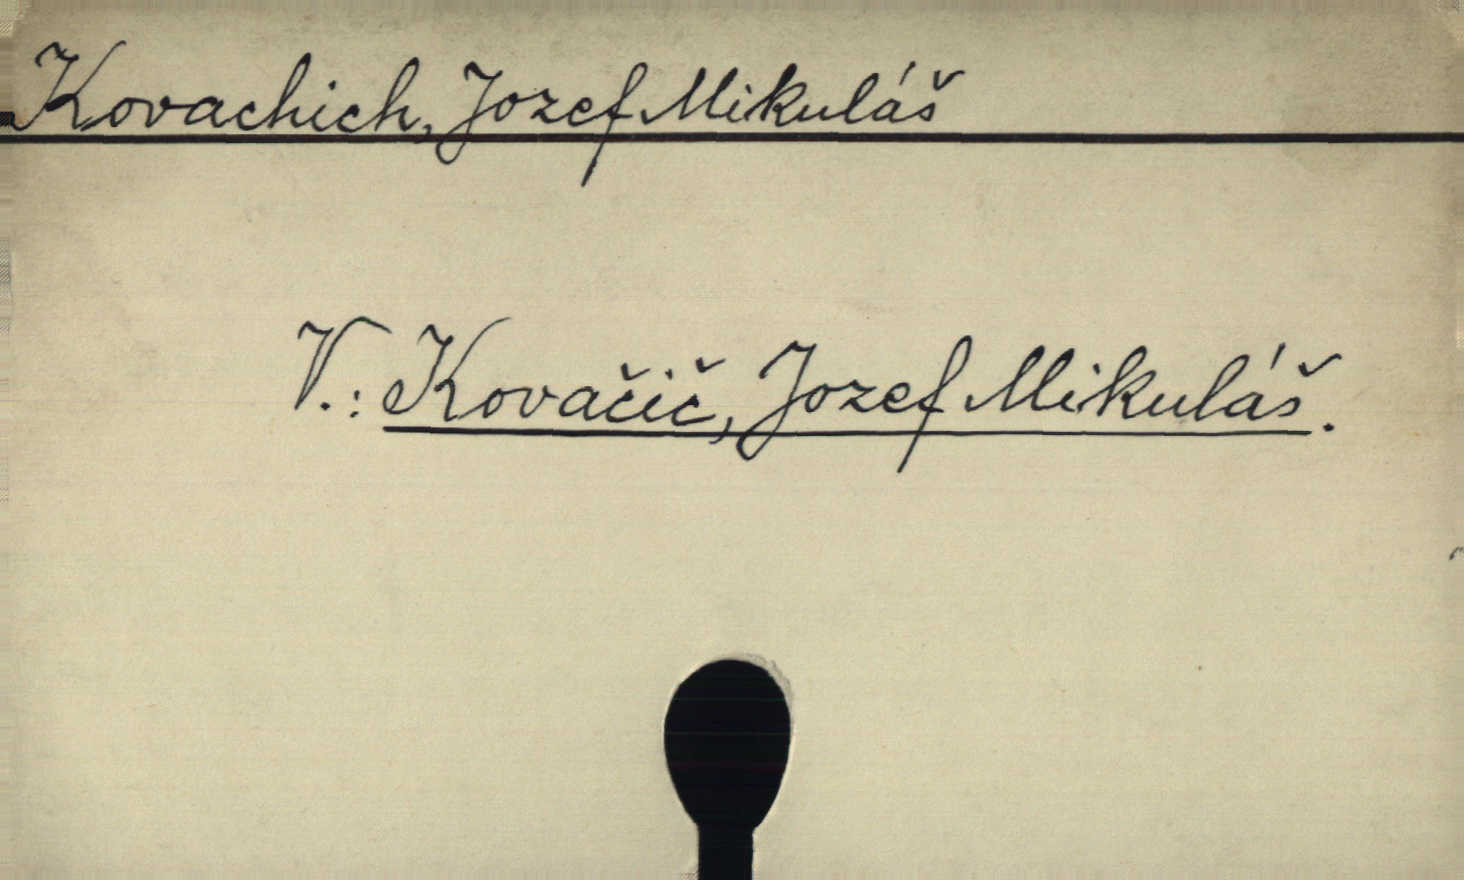 Kovachich, Jozef Mikuláš
V.: Kovačič, Jozef Mikuláš.